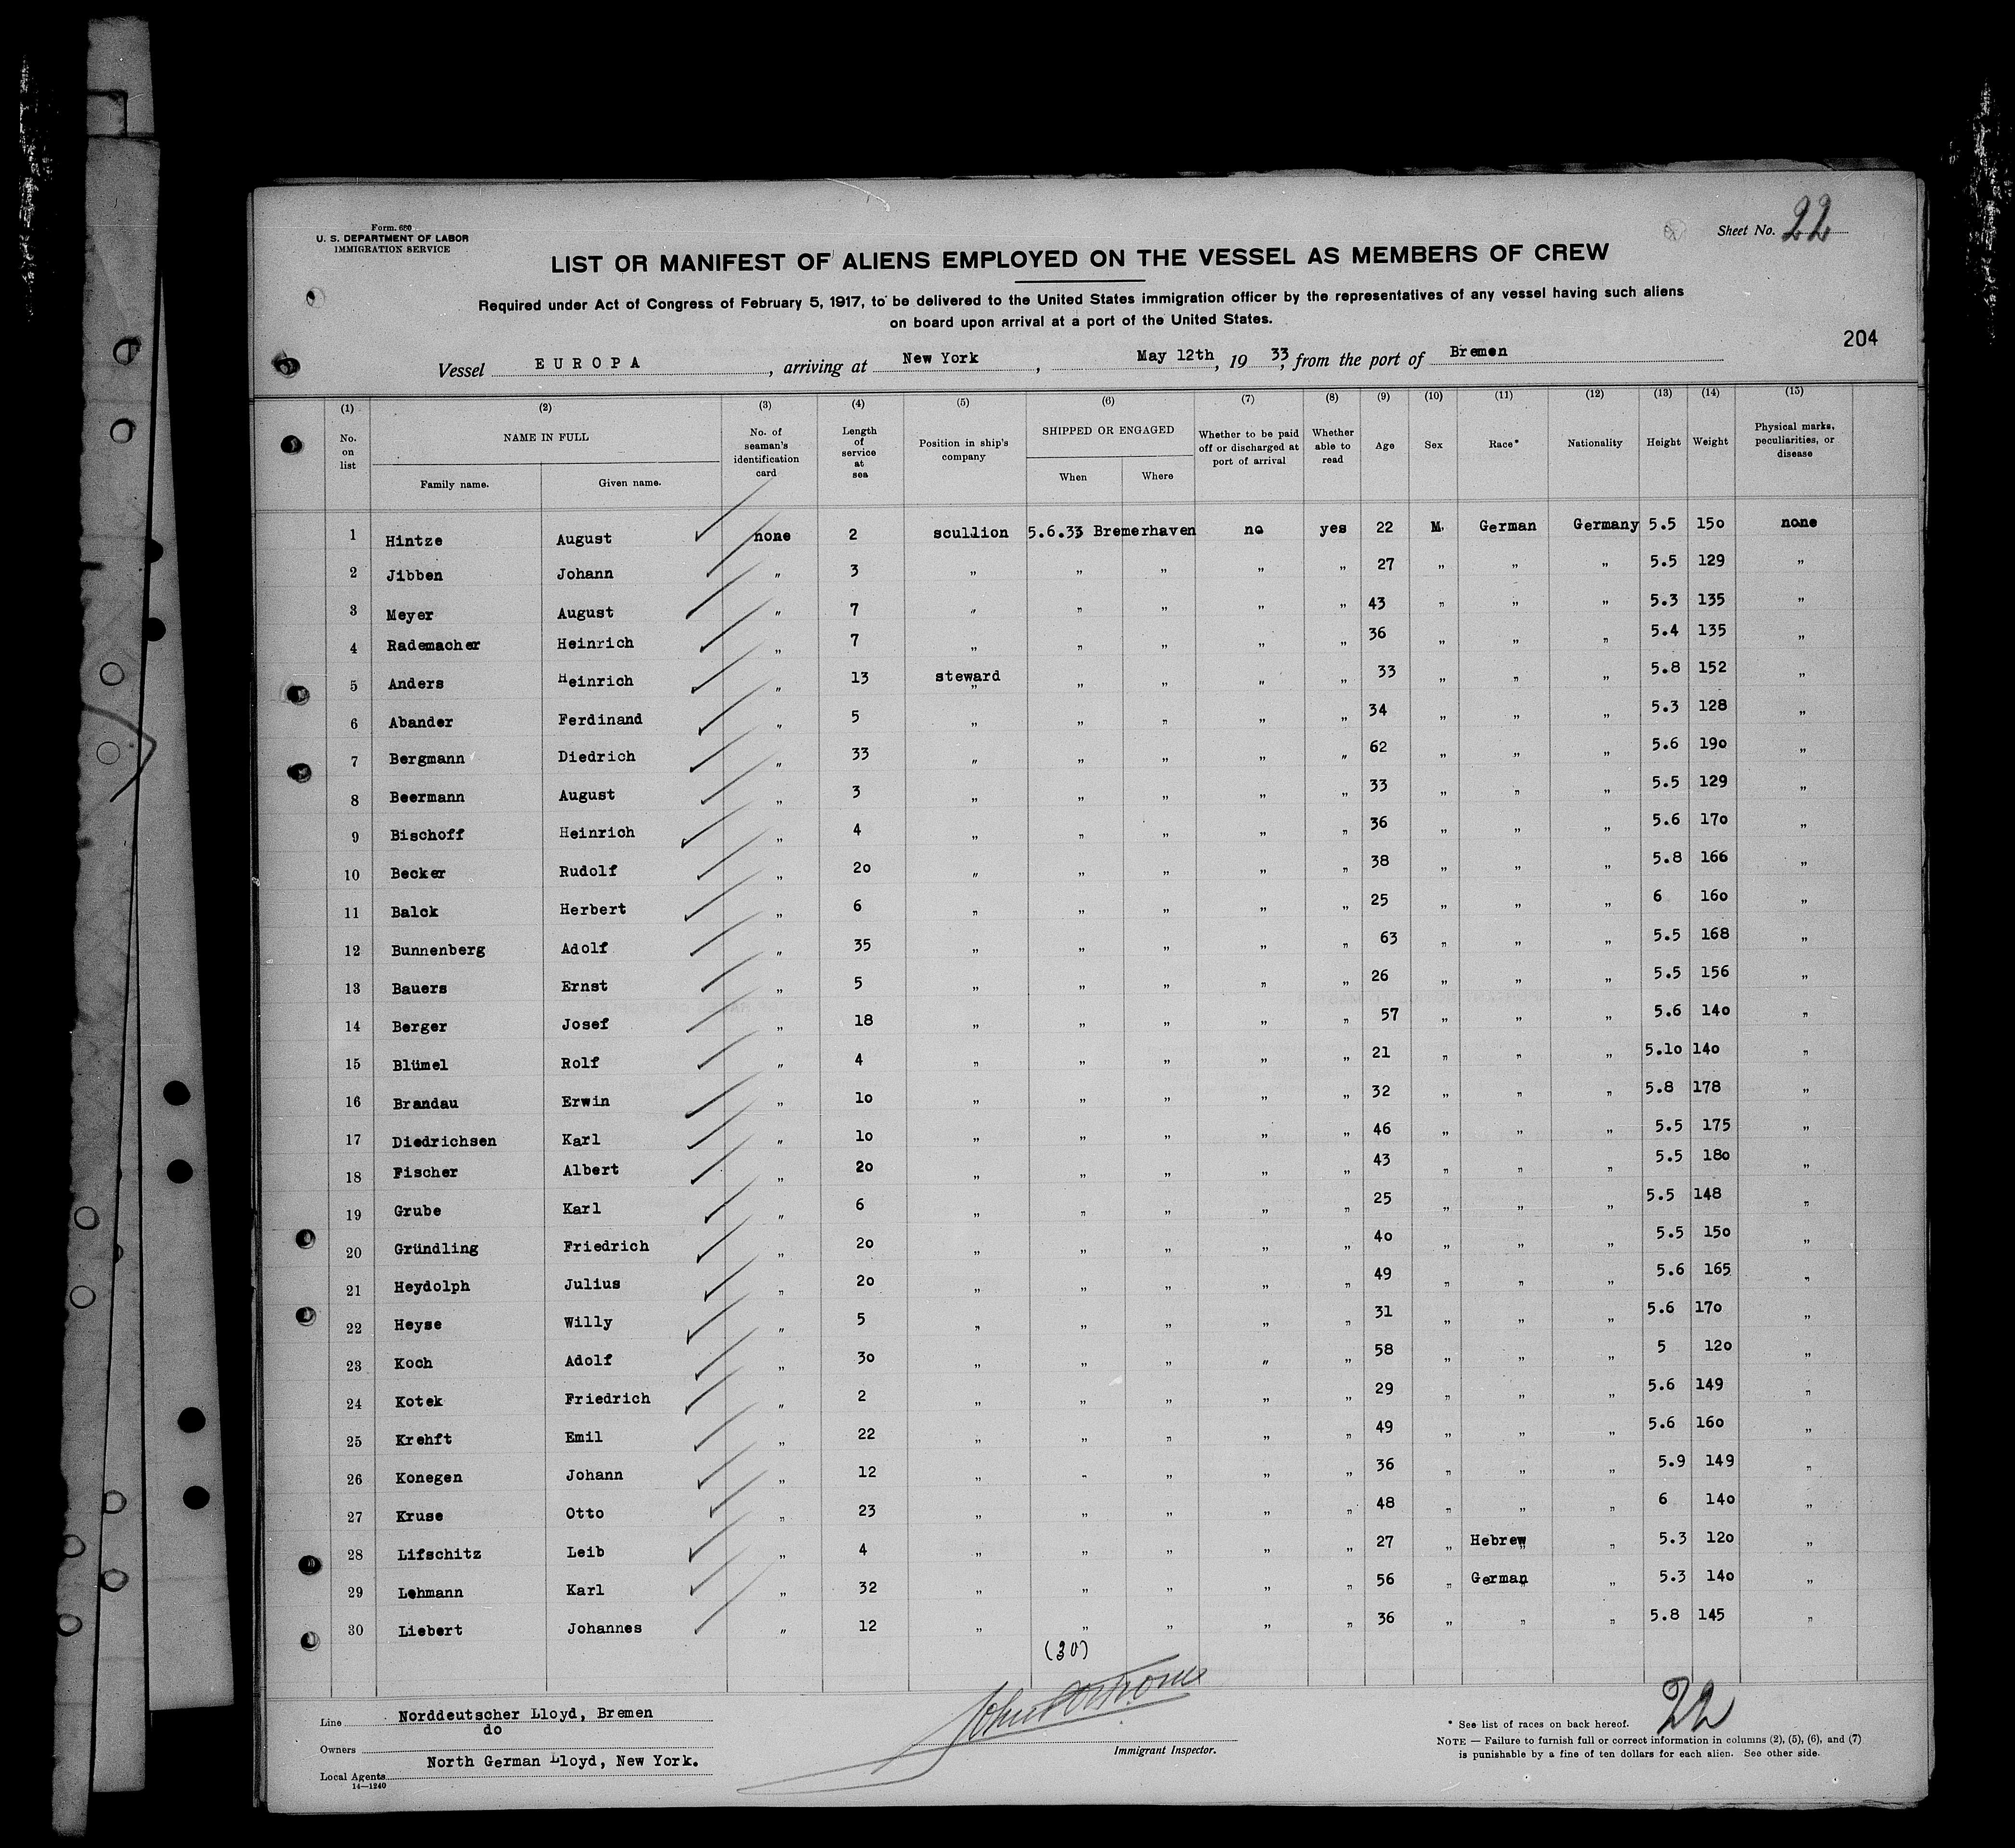 Form. 680
U. S. DEPARTMENT OF LABOR
IMMIGRATION SERVICE
Sheet No. 22
LIST OR MANIFEST OF ALIENS EMPLOYED ON THE VESSEL AS MEMBERS OF CREW
Required under Act of Congress of February 5, 1917, to be delivered to the United States immigration officer by the representatives of any vessel having such aliens
on board upon arrival at a port of the United States.
204
Vessel EUROPA, arriving at New York, May 12th, 1933, from the port of Bremen
(1) (2) (3) (4) (5) (6) (7) (8) (9) (10) (11) (12) (13) (14) (15)
No. on list NAME IN FULL Family name. Given name. No. of seaman's identification card Length of service at sea Position in ship's company SHIPPED OR ENGAGED When Where Whether to be paid off or discharged at port of arrival Whether able to read Age Sex Race* Nationality Height Weight Physical marks, peculiarities, or disease
1 Hintze August none 2 scullion 5.6.33 Bremerhaven no yes 22 M. German Germany 5.5 15o none
2 Jibben Johann „ 3 „ „ „ „ „ 27 „ „ „ 5.5 129 „
3 Meyer August „ 7 „ „ „ „ „ 43 „ „ „ 5.3 135 „
4 Rademacher Heinrich „ 7 „ „ „ „ „ 36 „ „ „ 5.4 135 „
5 Anders Heinrich „ 13 steward „ „ „ „ „ 33 „ „ „ 5.8 152 „
6 Abander Ferdinand „ 5 „ „ „ „ „ 34 „ „ „ 5.3 128 „
7 Bergmann Diedrich „ 33 „ „ „ „ „ 62 „ „ „ 5.6 19o „
8 Beermann August „ 3 „ „ „ „ „ 33 „ „ „ 5.5 129 „
9 Bischoff Heinrich „ 4 „ „ „ „ „ 36 „ „ „ 5.6 17o „
10 Becker Rudolf „ 2o „ „ „ „ „ 38 „ „ „ 5.8 166 „
11 Balck Herbert „ 6 „ „ „ „ „ 25 „ „ „ 6 16o „
12 Bunnenberg Adolf „ 35 „ „ „ „ „ 63 „ „ „ 5.5 168 „
13 Bauers Ernst „ 5 „ „ „ „ „ 26 „ „ „ 5.5 156 „
14 Berger Josef „ 18 „ „ „ „ „ 57 „ „ „ 5.6 14o „
15 Blümel Rolf „ 4 „ „ „ „ „ 21 „ „ „ 5.1o 14o „
16 Brandau Erwin „ 1o „ „ „ „ „ 32 „ „ „ 5.8 178 „
17 Diedrichsen Karl „ 1o „ „ „ „ „ 46 „ „ „ 5.5 175 „
18 Fischer Albert „ 2o „ „ „ „ „ 43 „ „ „ 5.5 18o „
19 Grube Karl „ 6 „ „ „ „ „ 25 „ „ „ 5.5 148 „
20 Gründling Friedrich „ 2o „ „ „ „ „ 4o „ „ „ 5.5 15o „
21 Heydolph Julius „ 2o „ „ „ „ „ 49 „ „ „ 5.6 165 „
22 Heyse Willy „ 5 „ „ „ „ „ 31 „ „ „ 5.6 17o „
23 Koch Adolf „ 3o „ „ „ „ „ 58 „ „ „ 5 12o „
24 Kotek Friedrich „ 2 „ „ „ „ „ 29 „ „ „ 5.6 149 „
25 Krehft Emil „ 22 „ „ „ „ „ 49 „ „ „ 5.6 16o „
26 Konegen Johann „ 12 „ „ „ „ „ 36 „ „ „ 5.9 149 „
27 Kruse Otto „ 23 „ „ „ „ „ 48 „ „ „ 6 14o „
28 Lifschitz Leib „ 4 „ „ „ „ „ 27 „ Hebrew „ „ 5.3 12o „
29 Lehmann Karl „ 32 „ „ „ „ „ 56 „ German „ „ 5.3 14o „
30 Liebert Johannes „ 12 „ „ „ „ „ 36 „ „ „ 5.8 145 „
(30)
Line Norddeutscher Lloyd, Bremen
Owners do
Local Agents North German Lloyd, New York.
14—1240
Immigrant Inspector.
22
* See list of races on back hereof.
NOTE — Failure to furnish full or correct information in columns (2), (5), (6), and (7)
is punishable by a fine of ten dollars for each alien. See other side.